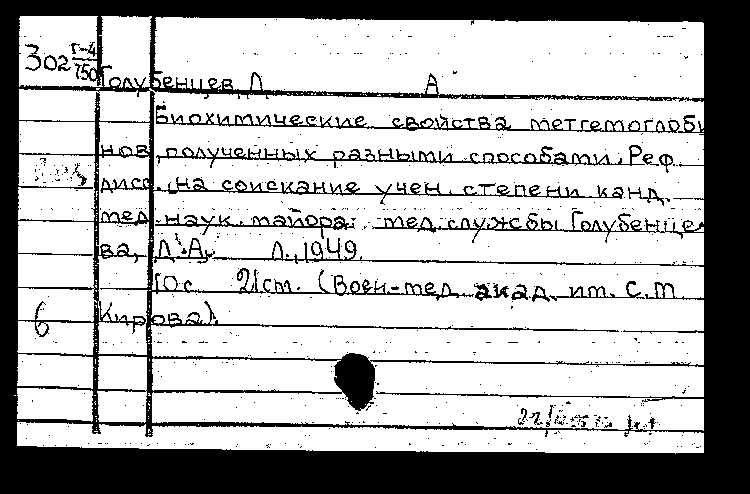 302 Г-4/750
Голубенцев, Д А
Биохимические свойства метгемоглоби
нов, полученных разными способами. Реф.
дисс. на соискание учен. степени канд.
мед. наук. майора мед. службы Голубенце
ва, Д. А. Л., 1949.
10 с. 21 cm. (Воен-мед. акад. им. С.М.
6 Кирова).